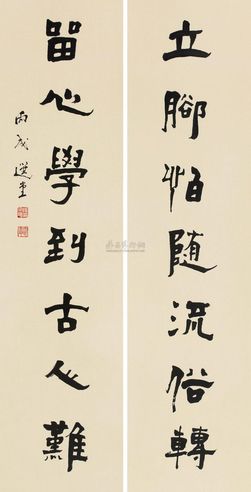 立腳怕随流俗轉
留心學到古人難
丙戌選堂